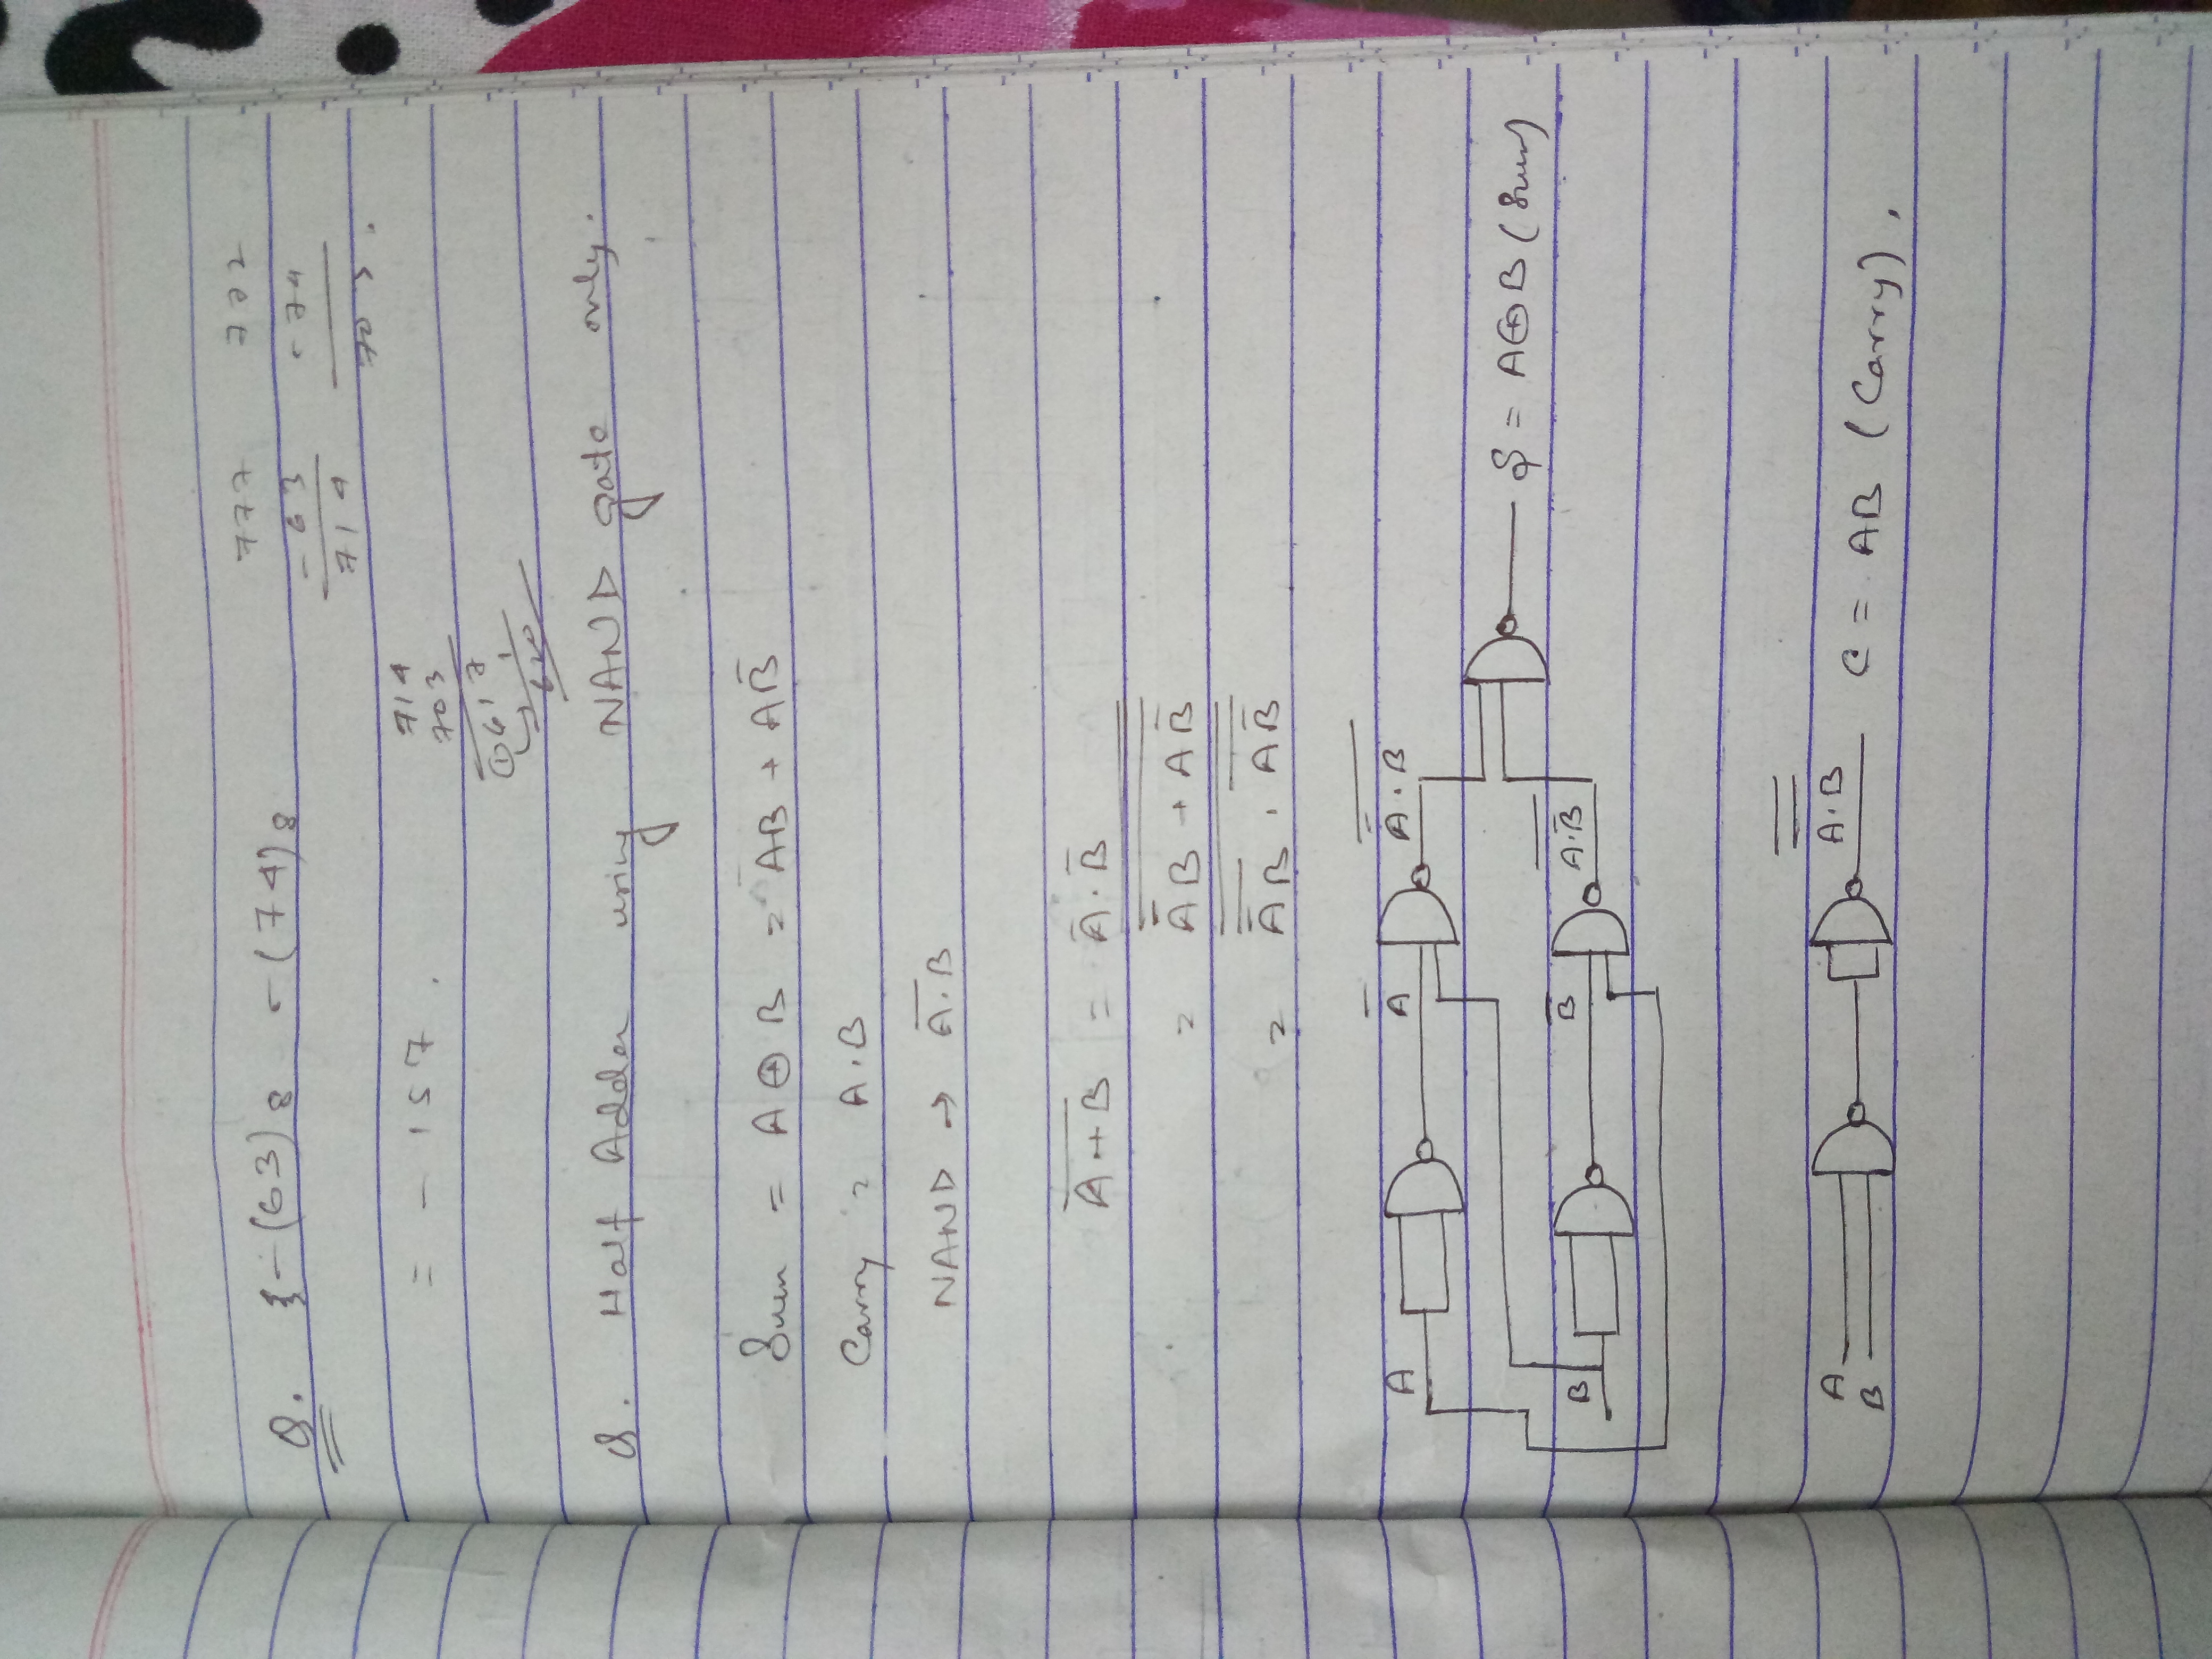 Q. }-(63)₈ -(74)₈
777
- 63
714
777
- 74
703.
= - 157.
714
703
①617
1
620
Q. Half Adder using NAND gate only.
Sum = A ⊕ B = A̅B + AB̅
Carry = A.B
NAND → \overline{A.B}
\overline{A+B} = A̅.B̅
= \overline{\overline{A̅B + AB̅}}
= \overline{\overline{A̅B} . \overline{AB̅}}
A A̅ \overline{A̅.B}
S = A⊕B (Sum)
B B̅ \overline{A.B̅}
\overline{\overline{A.B}}
A
B
C = AB (Carry).